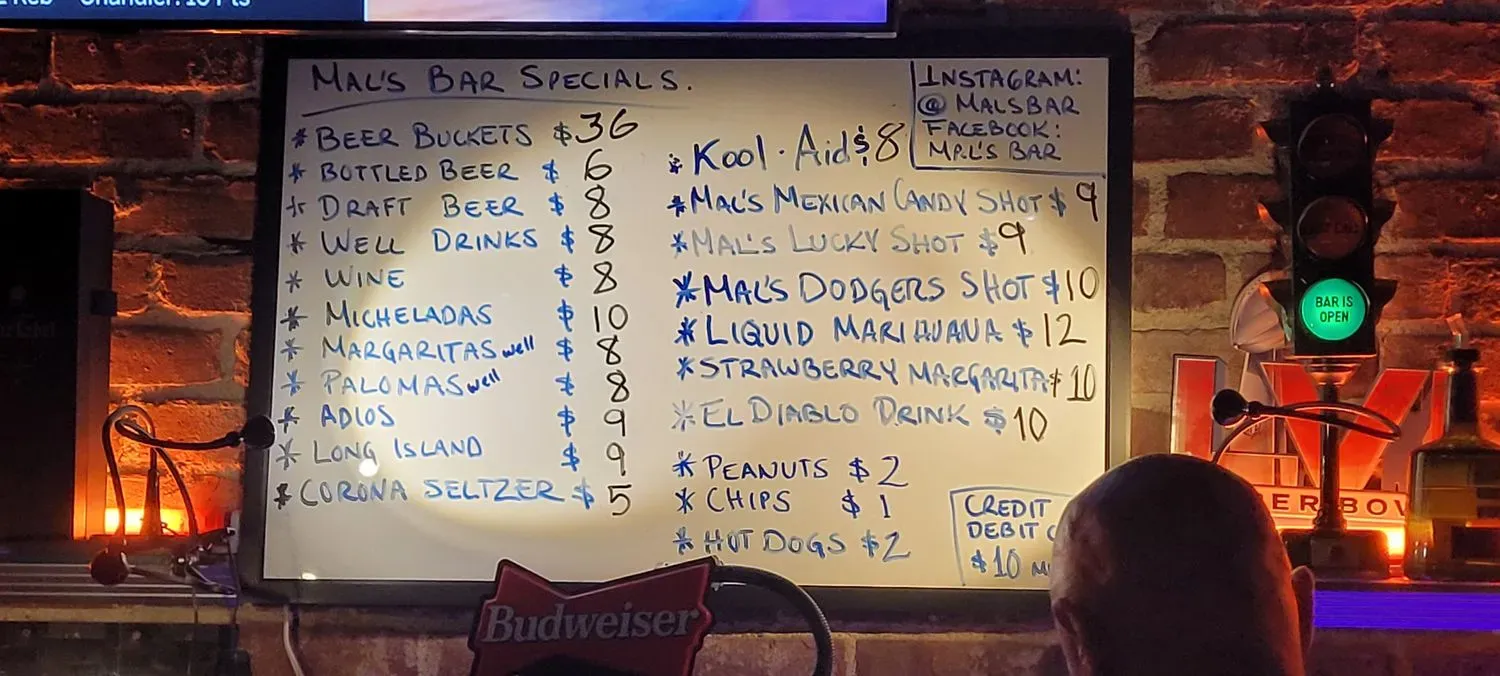 Chandler: 10 Pts
MAL'S BAR SPECIALS.
* BEER BUCKETS $36
* BOTTLED BEER $ 6
* DRAFT BEER $ 8
* WELL DRINKS $ 8
* WINE $ 8
* MICHELADAS $ 10
* MARGARITAS well $ 8
* PALOMAS well $ 8
* ADIOS $ 9
* LONG ISLAND $ 9
* CORONA SELTZER $ 5
INSTAGRAM:
@ MALSBAR
FACEBOOK:
MAL'S BAR
* Kool·Aid $8
* MAL'S MEXICAN CANDY SHOT $ 9
* MAL'S LUCKY SHOT $9
* MAL'S DODGERS SHOT $10
* LIQUID MARIHUANA $ 12
* STRAWBERRY MARGARITA $10
* EL DIABLO DRINK $10
* PEANUTS $ 2
* CHIPS $ 1
* HOT DOGS $2
CREDIT
DEBIT
$10
BAR IS
OPEN
Budweiser